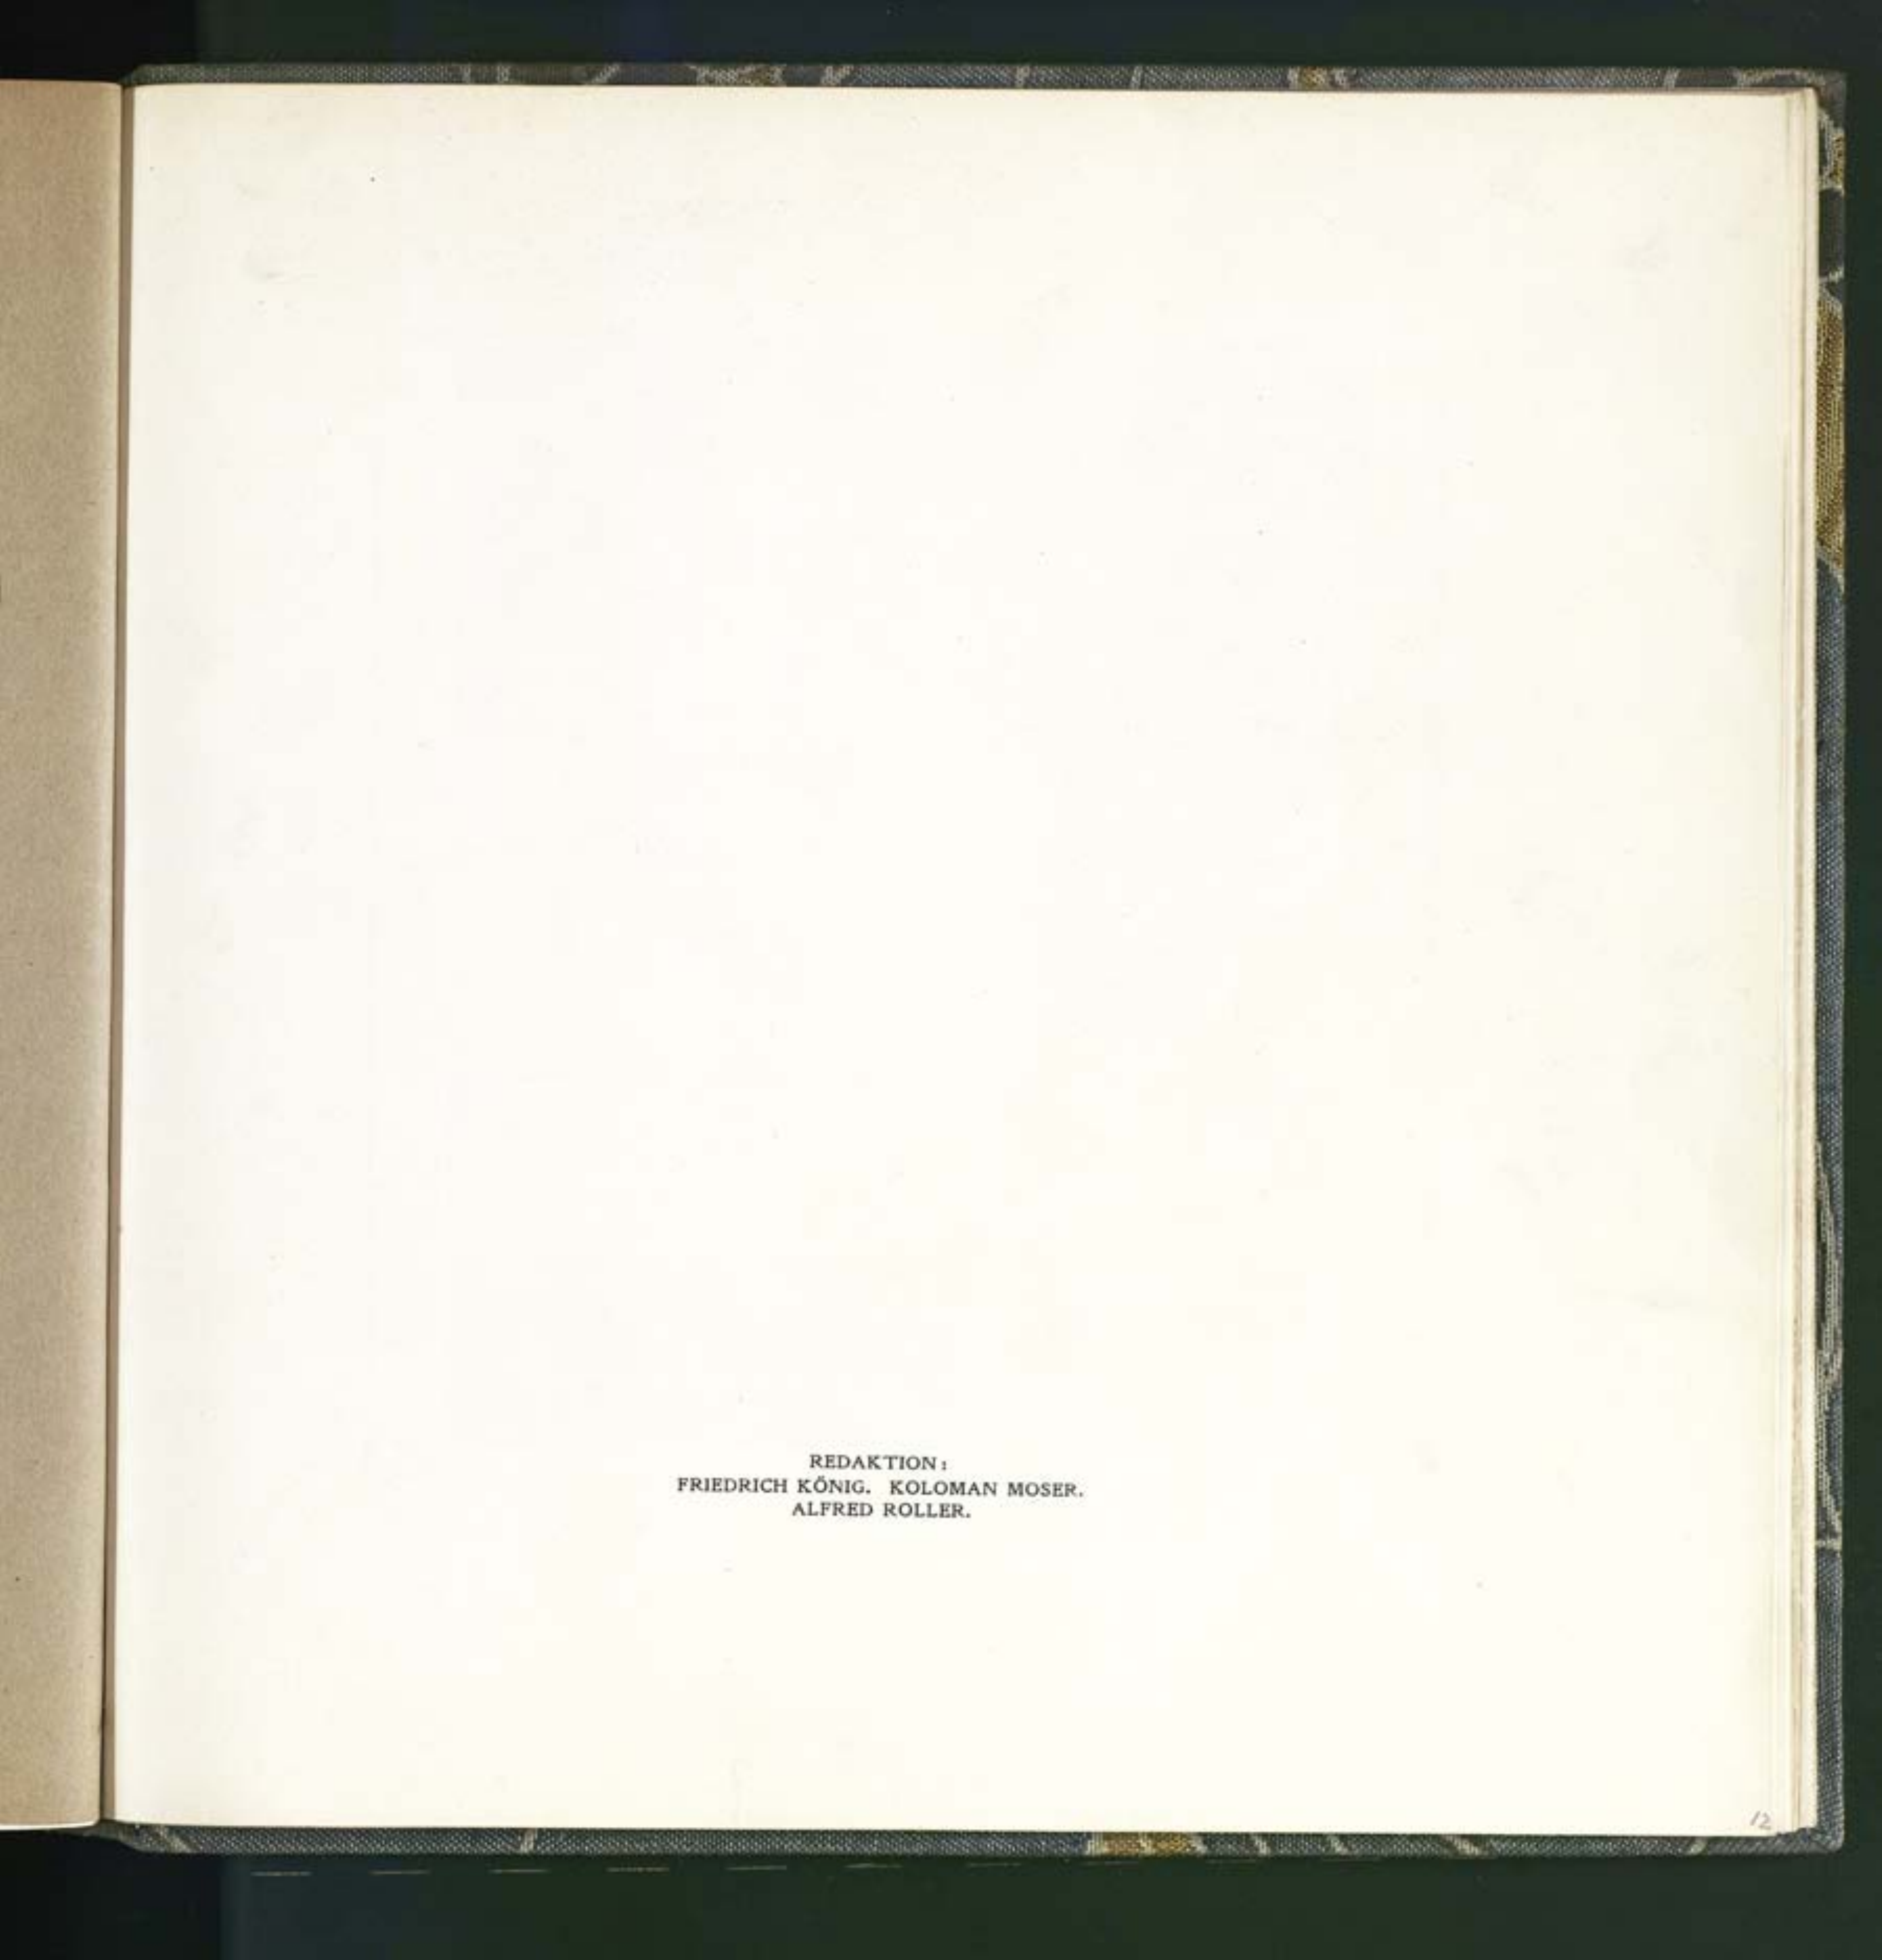 REDAKTION:
FRIEDRICH KÖNIG. KOLOMAN MOSER.
ALFRED ROLLER.
12